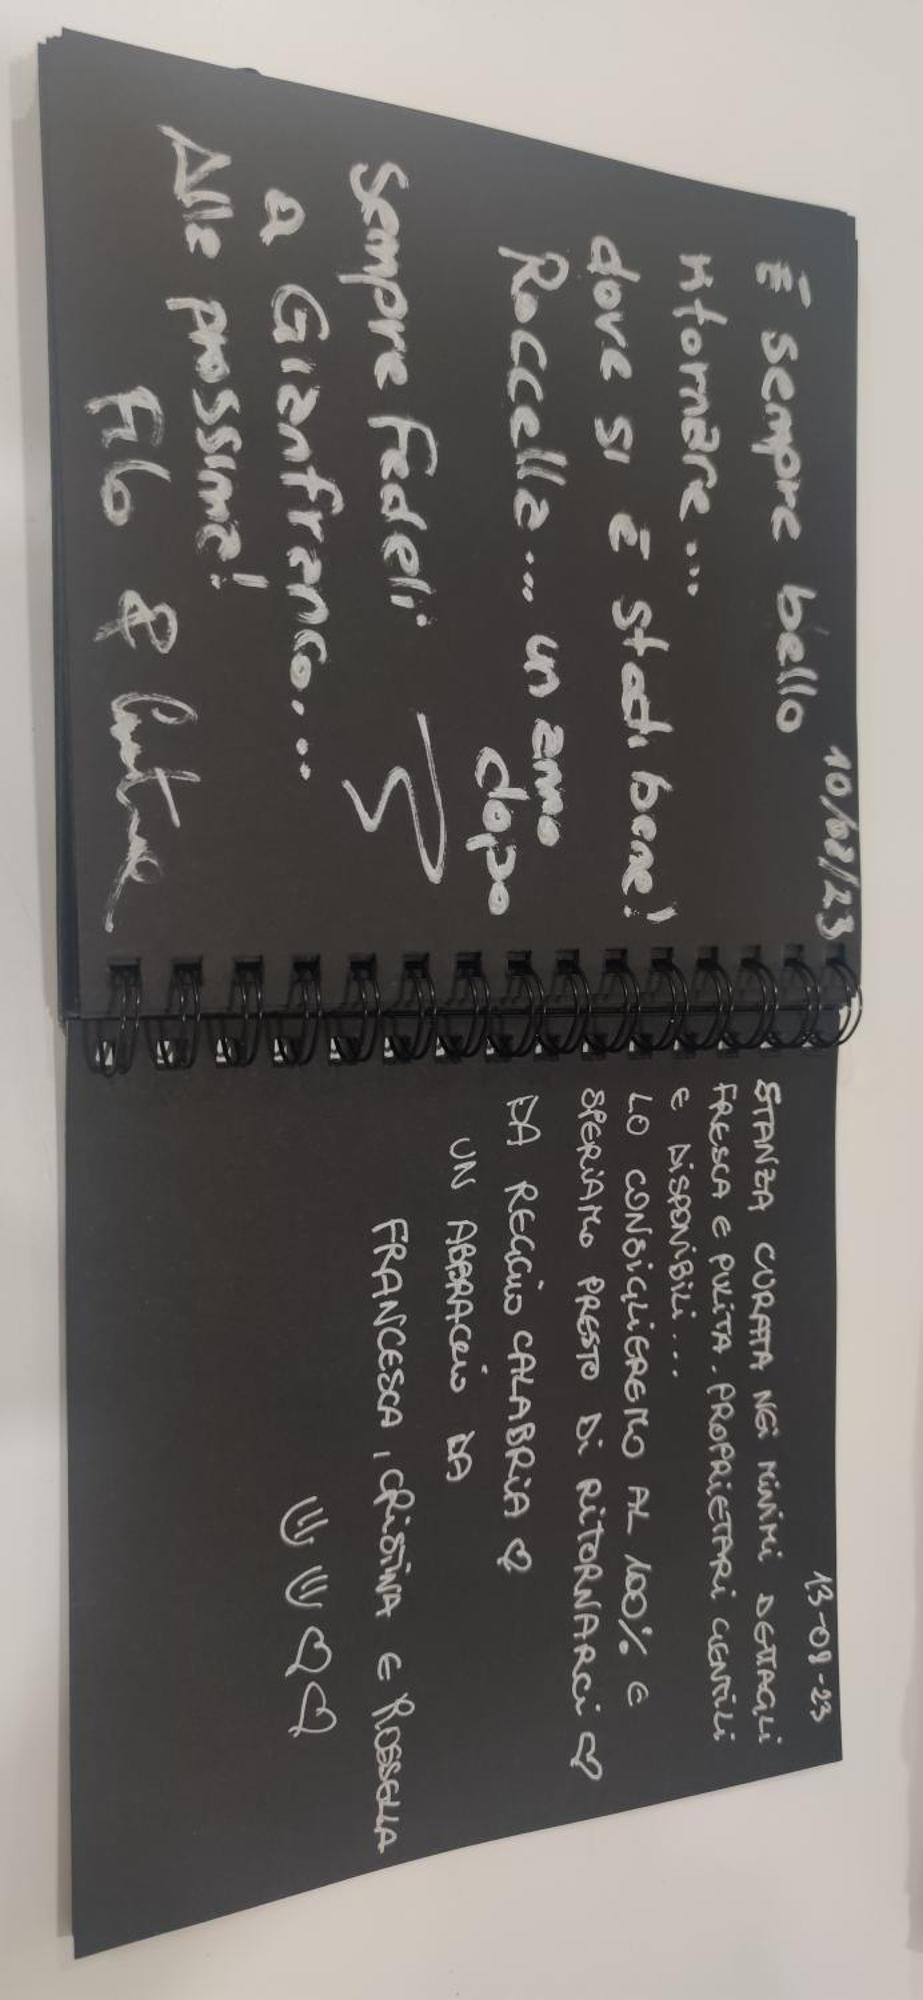 10/08/23
È sempre bello
ritornare...
dove si è stati bene!
Roccella... un anno
dopo
Sempre Fedeli
a Gianfranco...
Alla prossima!
&
13-08-23
STANZA CURATA NEI MINIMI DETTAGLI
FRESCA E PULITA. PROPRIETARI GENTILI
E DISPONIBILI...
LO CONSIGLIEREMO AL 100% E
SPERIAMO PRESTO DI RITORNARCI ♡
DA REGGIO CALABRIA ♡
UN ABBRACCIO DA
FRANCESCA, CRISTINA E ROSSELLA